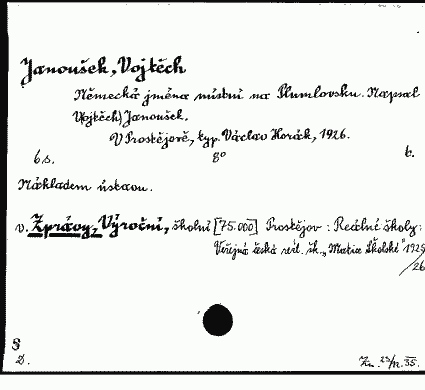 Janoušek, Vojtěch
Německá jména místní na Plumlovsku. Napsal
V(ojtěch) Janoušek.
V Prostějově, typ. Václav Horák, 1926.
6 s. 8° b.
Nákladem ústavu.
v. Zprávy, Výroční, školní [75.000] Prostějov: Reálné školy:
Veřejná česká reál. šk. „Matice Školské" 1925
/26
S
D. Zn. 23/IV. 35.